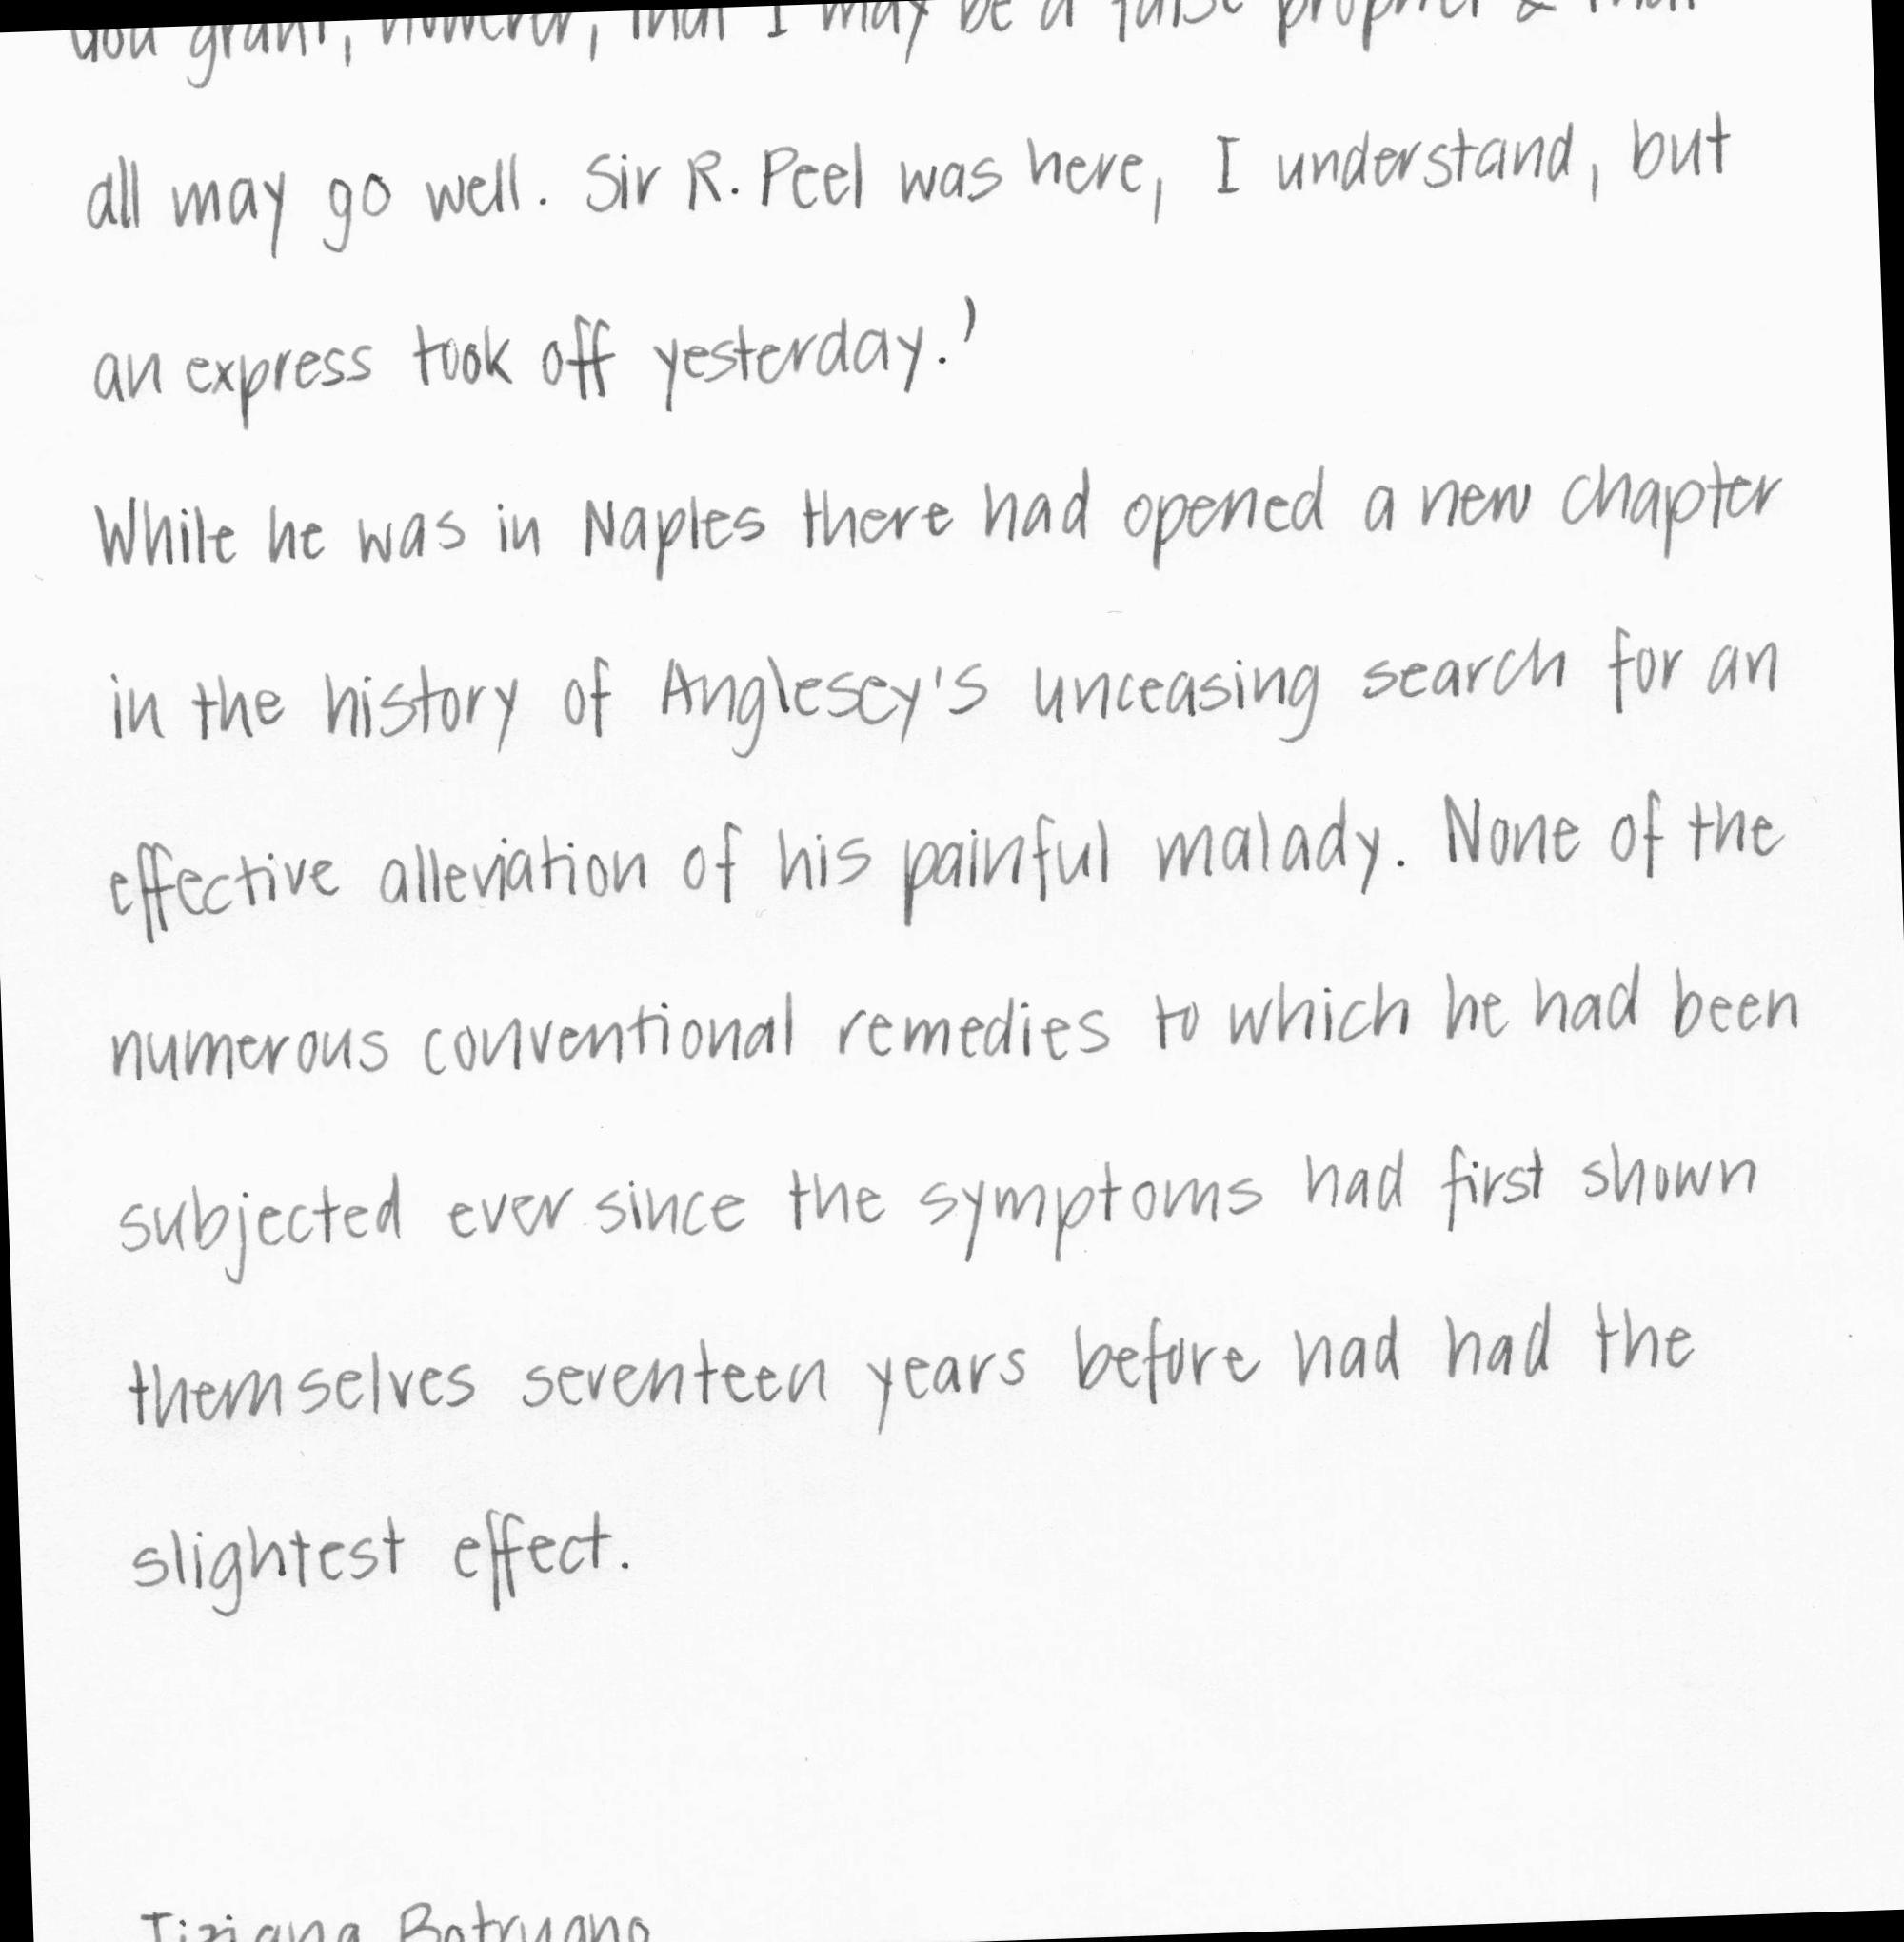 God grant, however, that I may be a false prophet & that
all may go well. Sir R. Peel was here, I understand, but
an express took off yesterday.'
While he was in Naples there had opened a new chapter
in the history of Anglesey's unceasing search for an
effective alleviation of his painful malady. None of the
numerous conventional remedies to which he had been
subjected ever since the symptoms had first shown
themselves seventeen years before had had the
slightest effect.
Tiziana